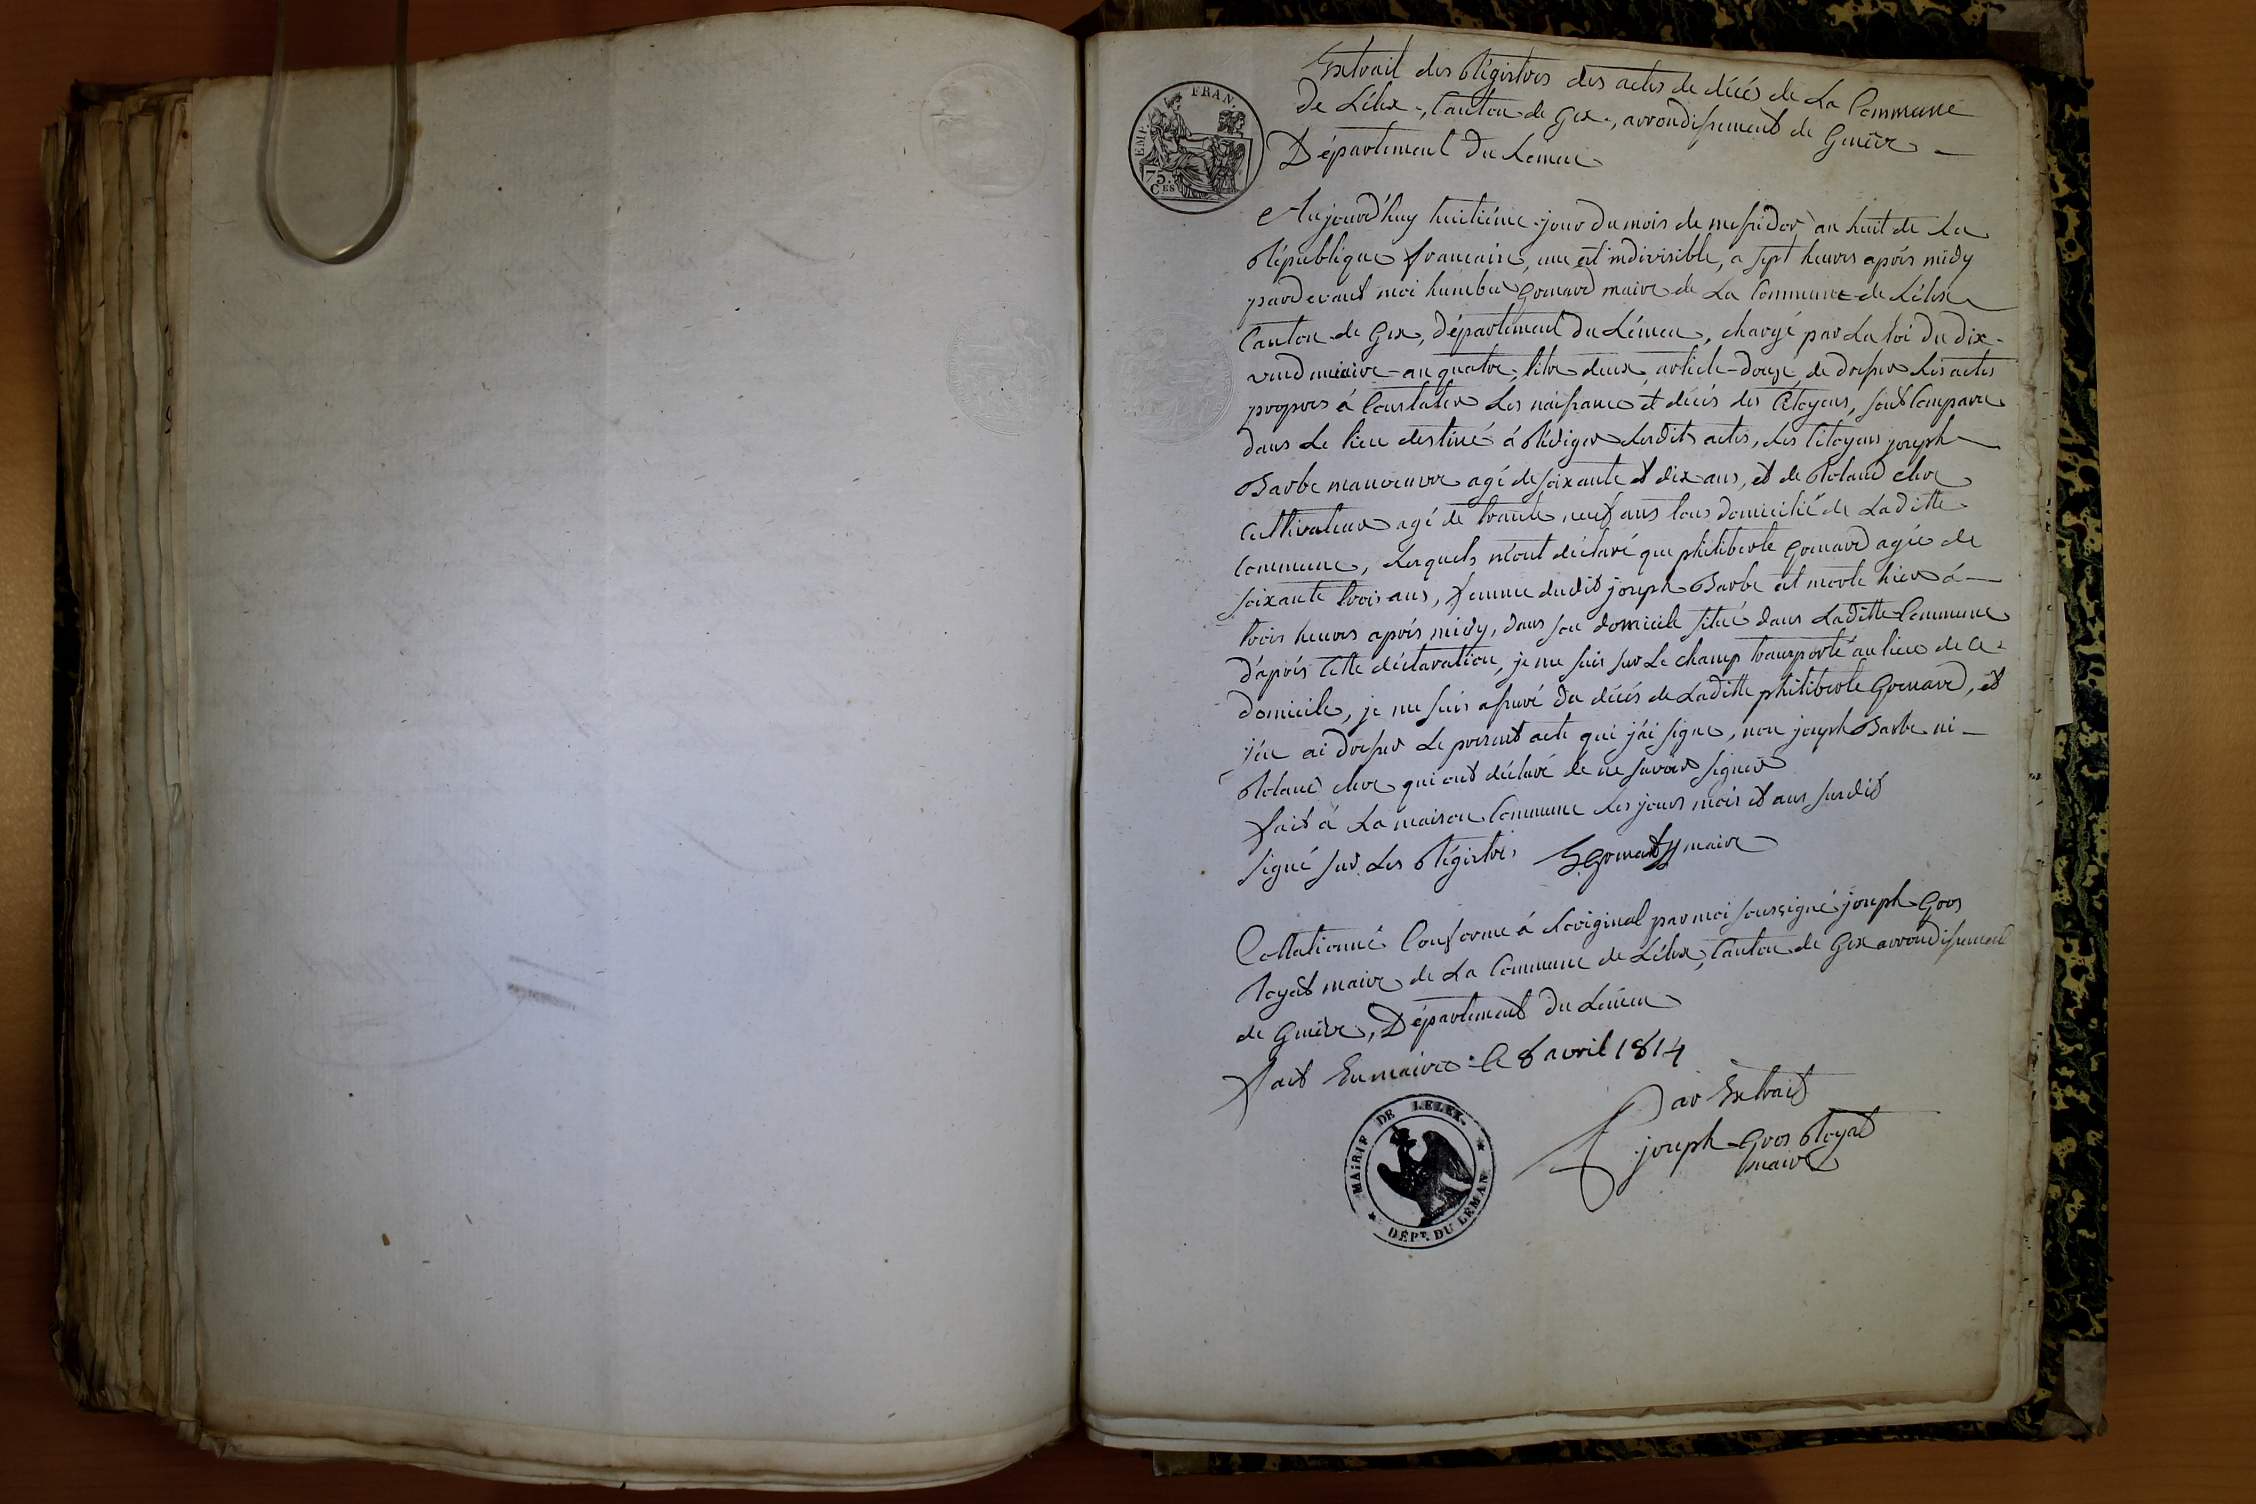 EMP. FRAN.
75.
CES
Extrait des Régistres des actes de décés de La Commune
de Lélex, Canton de Gex, arrondissement de Genève
Département du Leman
Aujourd'huy huitiéme jour du mois de messidor an huit de La
République francaise, une et indivisible, a sept heures aprés midy
pardevant moi humbert Gonard maire de La Commune de Lélex
Canton de Gex, département du Léman, chargé par La Loi du dix
vendmiaire an quatre, titre deux, article douze de dresser Les actes
propres á Constater Les naissance et décés des Citoyens, sont Comparu
dans Le lieu destiné á Rédiger Lesdits actes, Les Citoyens joseph
Barbe manoeuvre agé de soixante et dix ans, et de Roland
cultivateur agé de trante neuf ans tous domicilié de Laditte
Commune, Lesquels m'ont déclaré que philiberte Gonard agée de
soixante trois ans, femme dudit joseph Barbe est morte hier á
trois heures aprés midy, dans son domicile situé dans Laditte Commune
d'aprés Cette déclaration, je me suis sur Le champ transporté au lieu de Ce
domicile, je me suis assuré du décés de Laditte philiberte Gonard, et
j'en ai dresser Le present acte que j'ai signe, non joseph Barbe ni
Roland qui ont déclaré de ne savoir signer
fait á La maison Commune Les jours mois et ans susdit
signé sur Les Régistres H. Gonard maire
Collationné Conforme á Loriginal par moi soussigné joseph Gros
Royat maire de La Commune de Lélex, Canton de Gex arrondissement
de Genève, Département du Léman
fait En mairie Ce 8 avril 1814
Par Extrait
joseph Gros Royat
maire
MAIRIE DE LELEX.
DÉPT. DU LÉMAN